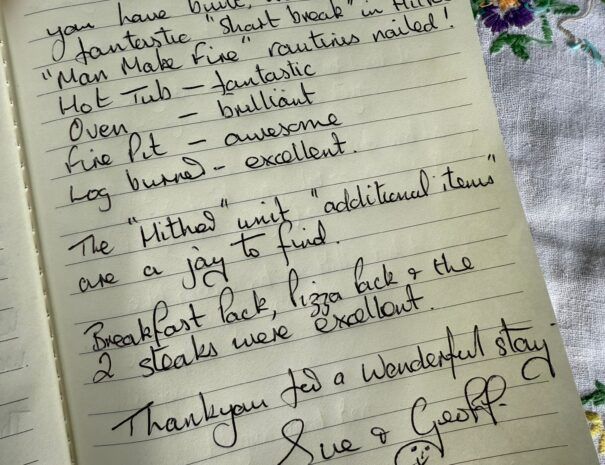 you have built,
fantastic "Short break" in
"Man Make Fire" routines nailed!
Hot Tub – fantastic
Oven – brilliant
Fire Pit – awesome
Log burner – excellent.
The unit "additional items"
are a joy to find.
Breakfast Pack, Pizza Pack & the
2 steaks were excellent.
Thankyou for a wonderful stay
Sue & Geoff.